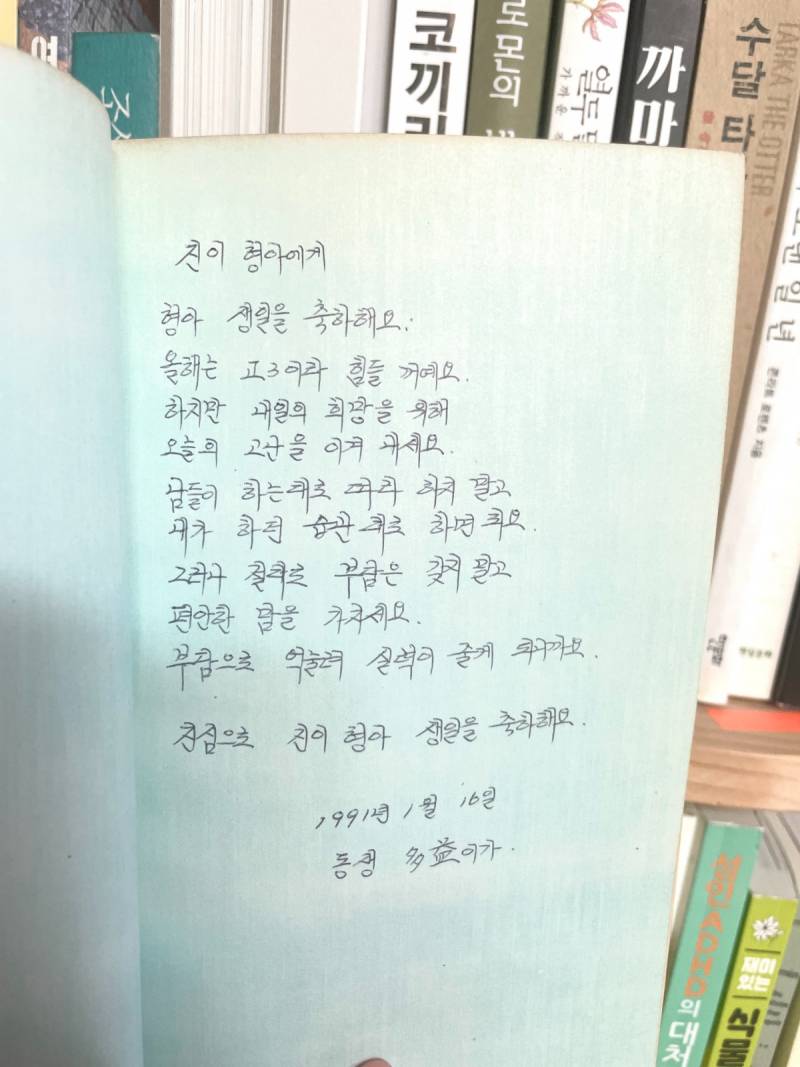 코끼리
로몬의
열두
가 까 운
까마
수달 타
LARKA THE OTTER
일 년
콘라트 로렌츠 지음
진이 형아에게
형아 생일을 축하해요.
올해는 고3이라 힘들 꺼예요.
하지만 내일의 희망을 위해
오늘의 고난을 이겨 내세요.
남들이 하는대로 따라 하지 말고
내가 하던 습관대로 하면 되요.
그러나 절대로 부담은 갖지 말고
편안한 맘을 가지세요.
부담으로 억눌려 실력이 줄게 되니까요.
진심으로 진이 형아 생일을 축하해요.
1991년 1월 16일
동생 多益이가.
성인 ADHD의 대처
재미있는
식물